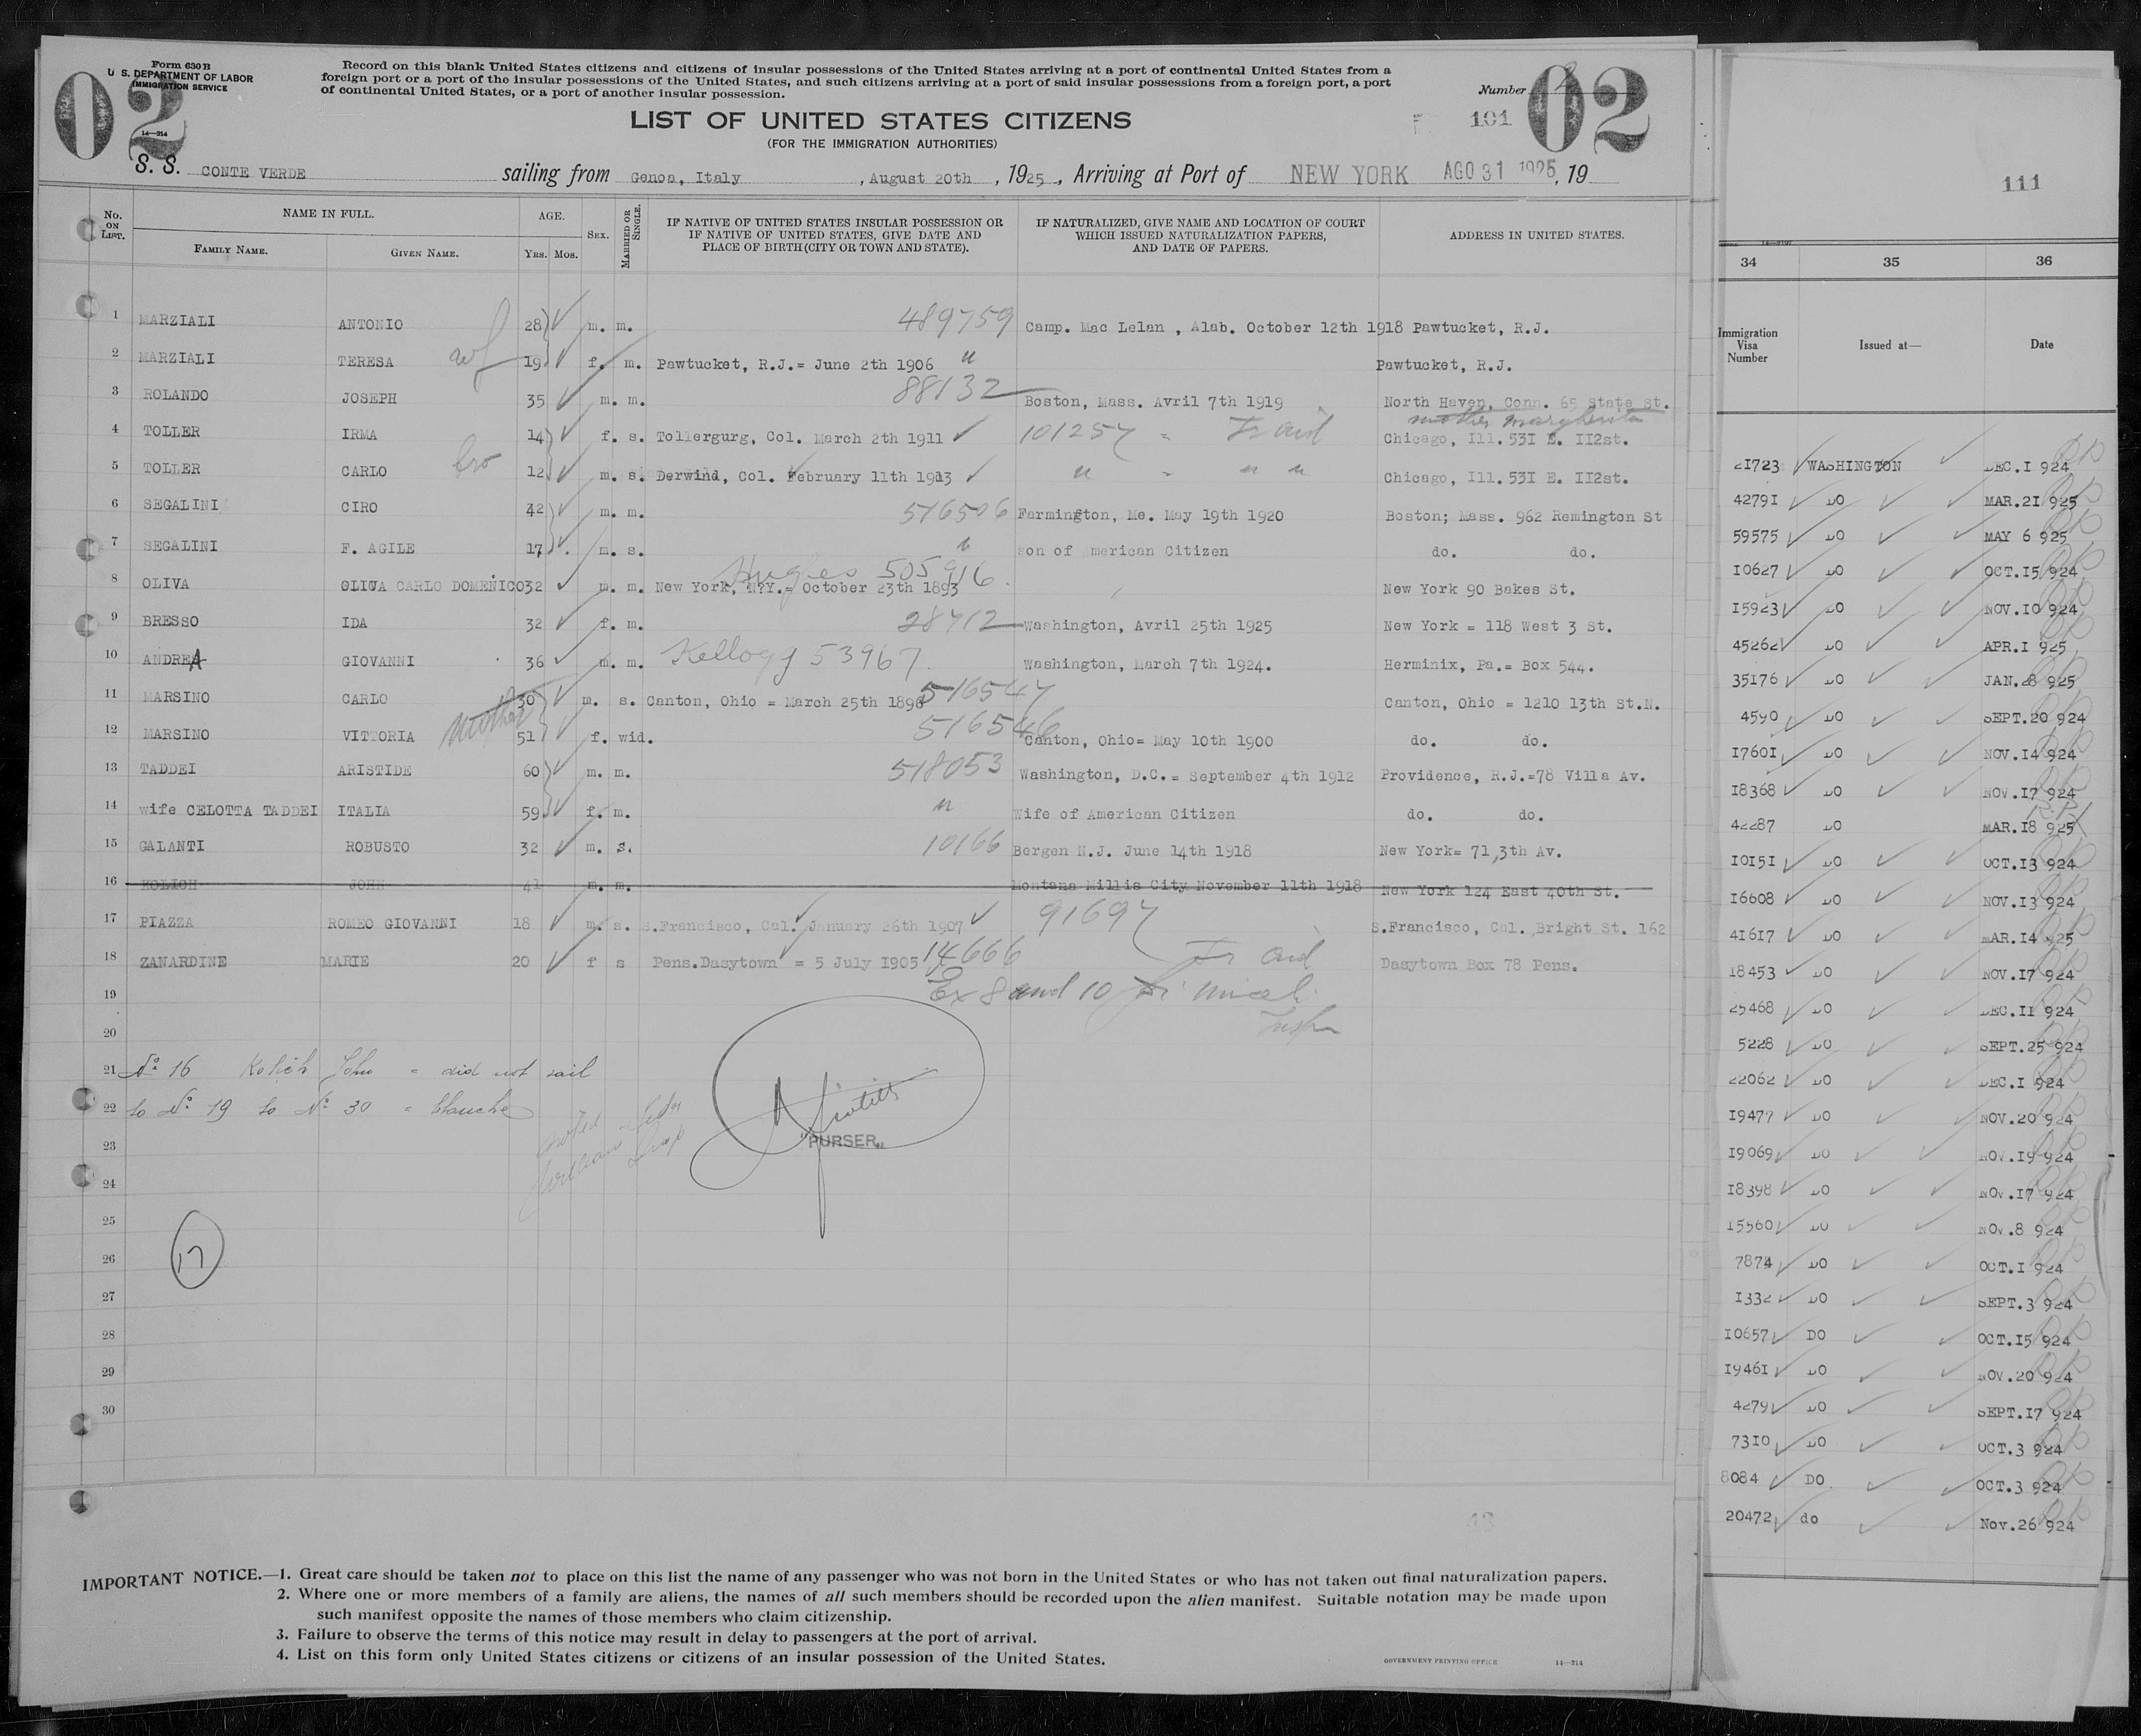 Form 630 B
U. S. DEPARTMENT OF LABOR
IMMIGRATION SERVICE
14—214
02
Record on this blank United States citizens and citizens of insular possessions of the United States arriving at a port of continental United States from a
foreign port or a port of the insular possessions of the United States, and such citizens arriving at a port of said insular possessions from a foreign port, a port
of continental United States, or a port of another insular possession.
Number 2
02
101
LIST OF UNITED STATES CITIZENS
(FOR THE IMMIGRATION AUTHORITIES)
S. S. CONTE VERDE sailing from Genoa, Italy , August 20th , 1925 , Arriving at Port of NEW YORK AGO 31 1925 , 19
No. ON LIST. NAME IN FULL. AGE. SEX. MARRIED OR SINGLE. IF NATIVE OF UNITED STATES INSULAR POSSESSION OR IF NATIVE OF UNITED STATES, GIVE DATE AND PLACE OF BIRTH (CITY OR TOWN AND STATE). IF NATURALIZED, GIVE NAME AND LOCATION OF COURT WHICH ISSUED NATURALIZATION PAPERS, AND DATE OF PAPERS. ADDRESS IN UNITED STATES.
FAMILY NAME. GIVEN NAME. YRS. MOS.
1 MARZIALI ANTONIO 28 m. m. 489759 Camp. Mac Lelan , Alab. October 12th 1918 Pawtucket, R.J.
2 MARZIALI TERESA wf 19 f. m. Pawtucket, R.J.= June 2th 1906 " Pawtucket, R.J.
3 ROLANDO JOSEPH 35 m. m. 88132 Boston, Mass. Avril 7th 1919 North Haven, Conn. 65 State St.
mother Margherita
4 TOLLER IRMA 14 f. s. Tollergurg, Col. March 2th 1911 101257 Chicago, Ill. 53I E. II2st.
5 TOLLER CARLO bro 12 m. s. Derwind, Col. February 11th 1913 " " " Chicago, Ill. 53I E. II2st.
6 SEGALINI CIRO 42 m. m. 516506 Farmington, Me. May 19th 1920 Boston; Mass. 962 Remington St
7 SEGALINI F. AGILE 17 m. s. " son of American Citizen do. do.
8 OLIVA OLIVA CARLO DOMENICO 32 m. m. Hughes 505916 New York, N.Y.= October 23th 1893 New York 90 Bakes St.
9 BRESSO IDA 32 f. m. 28712 Washington, Avril 25th 1925 New York = 118 West 3 St.
10 ANDREA GIOVANNI 36 m. m. Kellogg 53967 Washington, March 7th 1924. Herminix, Pa.= Box 544.
11 MARSINO CARLO 30 m. s. Canton, Ohio = March 25th 1898 516547 Canton, Ohio = 1210 13th St.N.
12 MARSINO VITTORIA mother 51 f. wid. 516546 Canton, Ohio= May 10th 1900 do. do.
13 TADDEI ARISTIDE 60 m. m. 518053 Washington, D.C. = September 4th 1912 Providence, R.J.=78 Villa Av.
14 wife CELOTTA TADDEI ITALIA 59 f. m. " Wife of American Citizen do. do.
15 GALANTI ROBUSTO 32 m. s. 10166 Bergen N.J. June 14th 1918 New York= 71,3th Av.
16 KOLICH JOHN 41 m. m. Montana Millis City November 11th 1918 New York 124 East 40th St.
17 PIAZZA ROMEO GIOVANNI 18 m. s. S.Francisco, Cal. January 26th 1907 91697 S.Francisco, Cal. Bright St. 162
18 ZANARDINE MARIE 20 f s Pens.Dasytown = 5 July 1905 14666 Dasytown Box 78 Pens.
19 Ex 8 and 10
20
21 No 16 Kolich John = did not sail
22 to No 19 to No 30 = blanche
23 "PURSER"
24
25
26 17
27
28
29
30
43
IMPORTANT NOTICE.—1. Great care should be taken not to place on this list the name of any passenger who was not born in the United States or who has not taken out final naturalization papers.
2. Where one or more members of a family are aliens, the names of all such members should be recorded upon the alien manifest. Suitable notation may be made upon
such manifest opposite the names of those members who claim citizenship.
3. Failure to observe the terms of this notice may result in delay to passengers at the port of arrival.
4. List on this form only United States citizens or citizens of an insular possession of the United States.
GOVERNMENT PRINTING OFFICE 14—214
111
34 35 36
Immigration Visa Number Issued at— Date
21723 WASHINGTON DEC.I 924
4279I DO MAR.2I 925
59575 DO MAY 6 925
I0627 DO OCT.I5 924
I5923 DO NOV.I0 924
45262 DO APR.I 925
35I76 DO JAN.28 925
4590 DO SEPT.20 924
I760I DO NOV.I4 924
I8368 DO NOV.I7 924
42287 DO MAR.I8 925
I0I5I DO OCT.I3 924
I6608 DO NOV.I3 924
4I6I7 DO MAR.I4 925
I8453 DO NOV.I7 924
25468 DO DEC.II 924
5228 DO SEPT.25 924
22062 DO DEC.I 924
I9477 DO NOV.20 924
I9069 DO NOV.I9 924
I8398 DO NOV.I7 924
I5560 DO NOV.8 924
7874 DO OCT.I 924
I332 DO SEPT.3 924
I0657 DO OCT.I5 924
I946I DO NOV.20 924
4279 DO SEPT.I7 924
73I0 DO OCT.3 924
8084 DO OCT.3 924
20472 do Nov.26 924